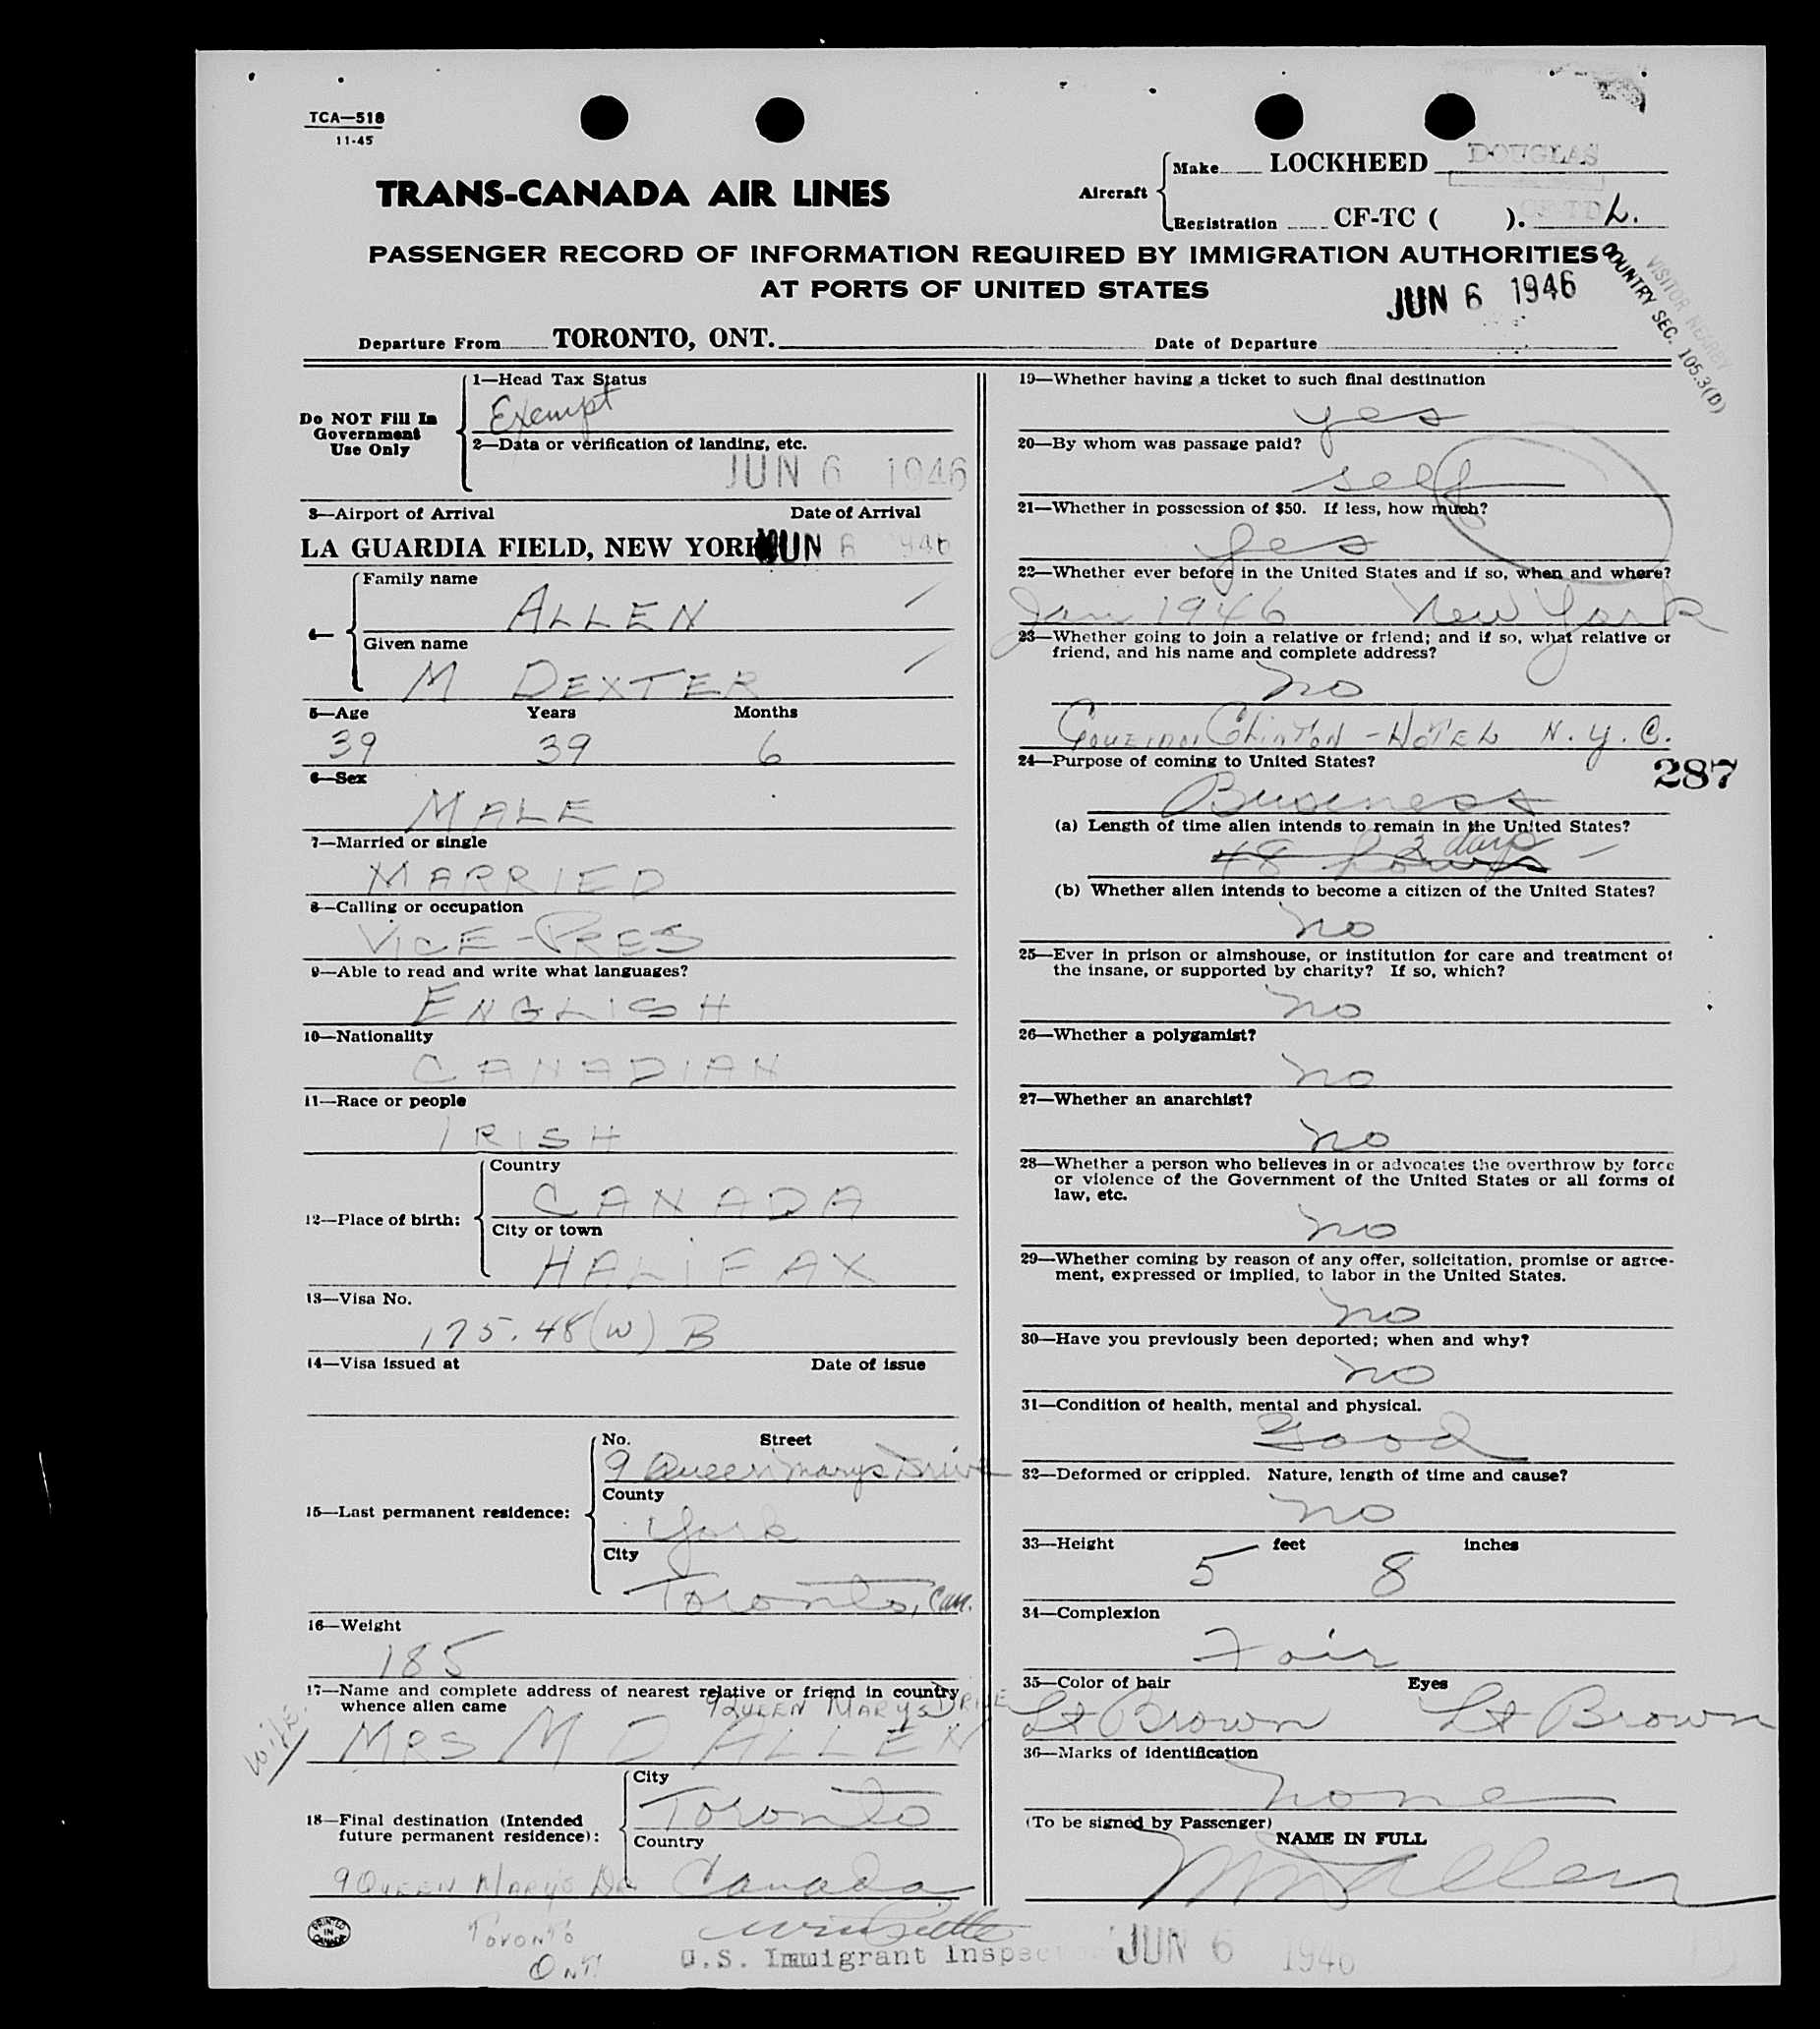 TCA—518
11-45
TRANS-CANADA AIR LINES
Aircraft
Make LOCKHEED DOUGLAS
Registration CF-TC ( ). CF-TD L.
PASSENGER RECORD OF INFORMATION REQUIRED BY IMMIGRATION AUTHORITIES
AT PORTS OF UNITED STATES
JUN 6 1946
VISITOR NEARBY
COUNTRY SEC. 105.3(D)
Departure From TORONTO, ONT.
Date of Departure
Do NOT Fill In
Government
Use Only
1—Head Tax Status
Exempt
2—Data or verification of landing, etc.
JUN 6 1946
3—Airport of Arrival Date of Arrival
LA GUARDIA FIELD, NEW YORK JUN 6 1946
4—
Family name
ALLEN
Given name
M DEXTER
5—Age Years Months
39 39 6
6—Sex
MALE
7—Married or single
MARRIED
8—Calling or occupation
VICE-PRES
9—Able to read and write what languages?
ENGLISH
10—Nationality
CANADIAN
11—Race or people
IRISH
12—Place of birth:
Country
CANADA
City or town
HALIFAX
13—Visa No.
175.48(W) B
14—Visa issued at Date of issue
15—Last permanent residence:
No. Street
9 Queen Marys Drive
County
York
City
Toronto, Can.
16—Weight
185
17—Name and complete address of nearest relative or friend in country
whence alien came
9 QUEEN MARYS DRIVE
wife
MRS M D ALLEN
18—Final destination (Intended
future permanent residence):
City
Toronto
Country
Canada
9 QUEEN MARY'S DR
TORONTO
ONT
PRINTED IN CANADA
U.S. Immigrant Inspec
JUN 6 1946
19—Whether having a ticket to such final destination
yes
20—By whom was passage paid?
self
21—Whether in possession of $50. If less, how much?
yes
22—Whether ever before in the United States and if so, when and where?
Jan 1946 New York
23—Whether going to join a relative or friend; and if so, what relative or
friend, and his name and complete address?
no
GOVERNOR CLINTON - HOTEL N.Y.C.
24—Purpose of coming to United States?
287
Business
(a) Length of time alien intends to remain in the United States?
48 hours 3 days
(b) Whether alien intends to become a citizen of the United States?
no
25—Ever in prison or almshouse, or institution for care and treatment of
the insane, or supported by charity? If so, which?
no
26—Whether a polygamist?
no
27—Whether an anarchist?
no
28—Whether a person who believes in or advocates the overthrow by force
or violence of the Government of the United States or all forms of
law, etc.
no
29—Whether coming by reason of any offer, solicitation, promise or agree-
ment, expressed or implied, to labor in the United States.
no
30—Have you previously been deported; when and why?
no
31—Condition of health, mental and physical.
Good
32—Deformed or crippled. Nature, length of time and cause?
no
33—Height feet inches
5 8
34—Complexion
Fair
35—Color of hair Eyes
Lt Brown Lt Brown
36—Marks of identification
none
(To be signed by Passenger)
NAME IN FULL
M D Allen